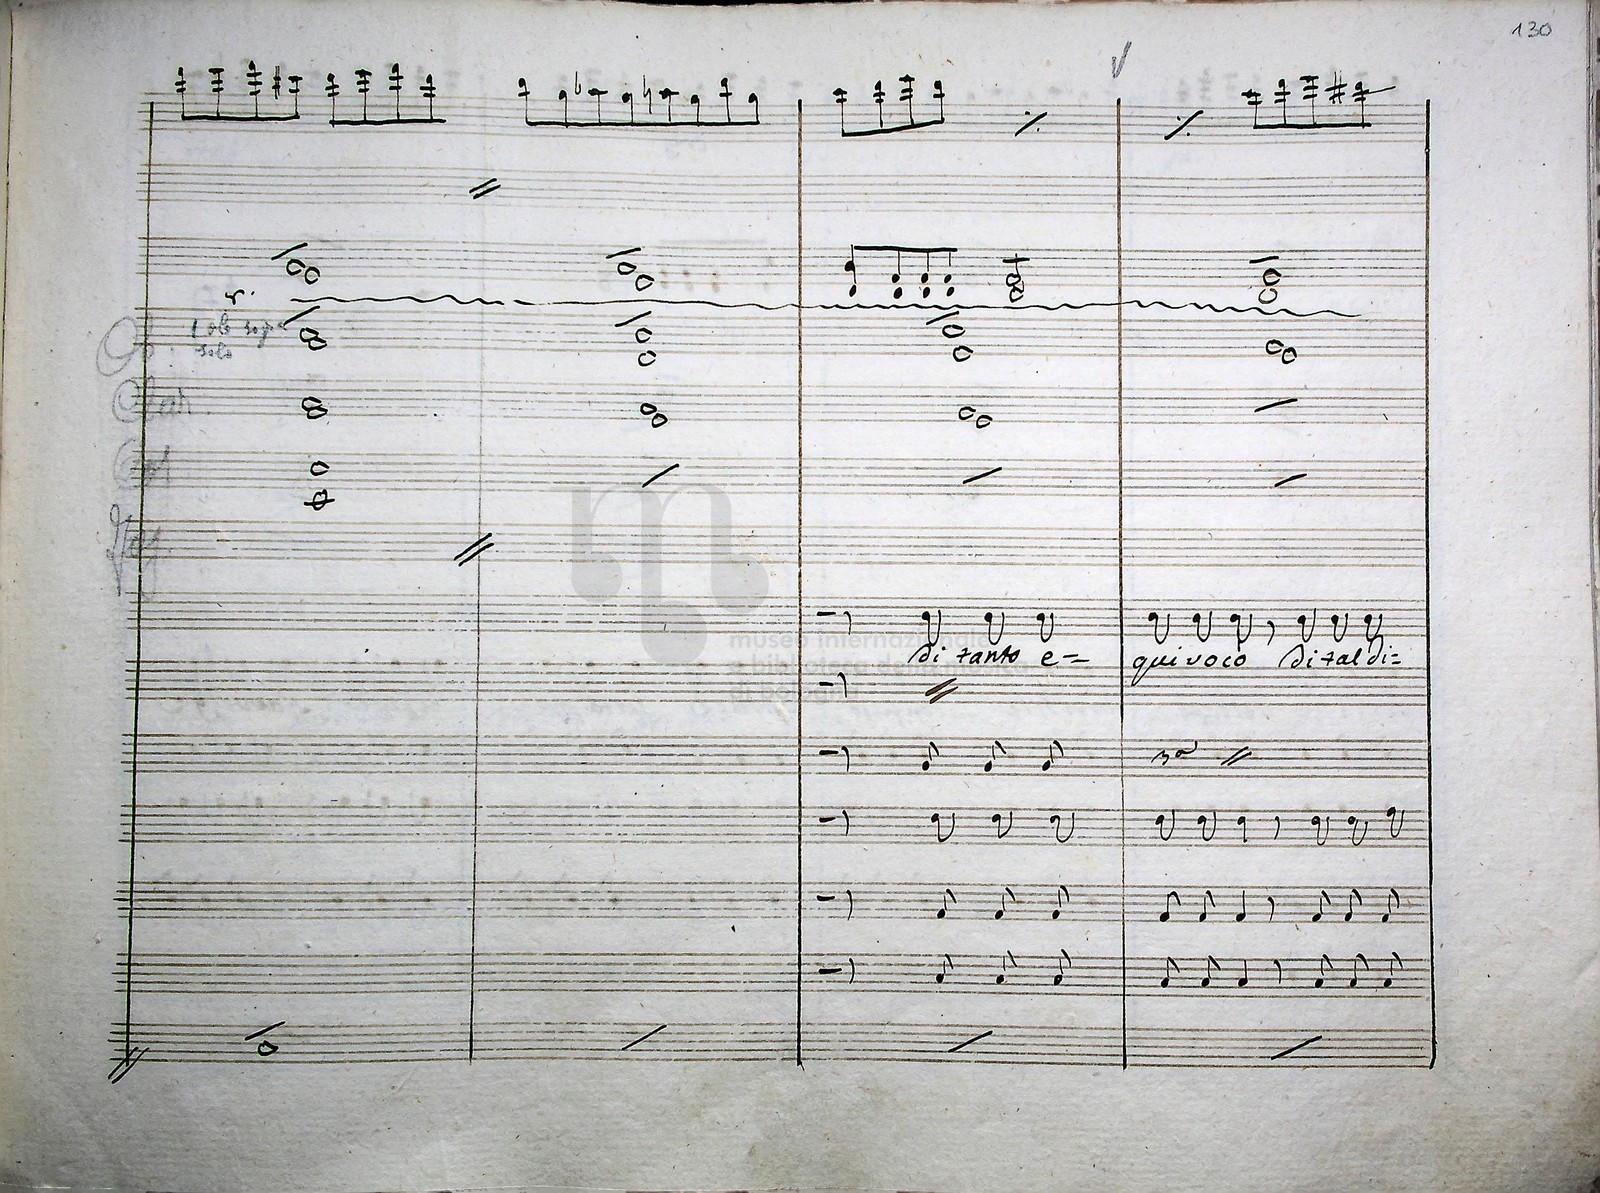 130
1 ob sopr
solo
Ob.
Clar.
Cor
Fag.
di tanto e=
quivoco di tal di=
museo internazionale
e biblioteca della musica
di bologna